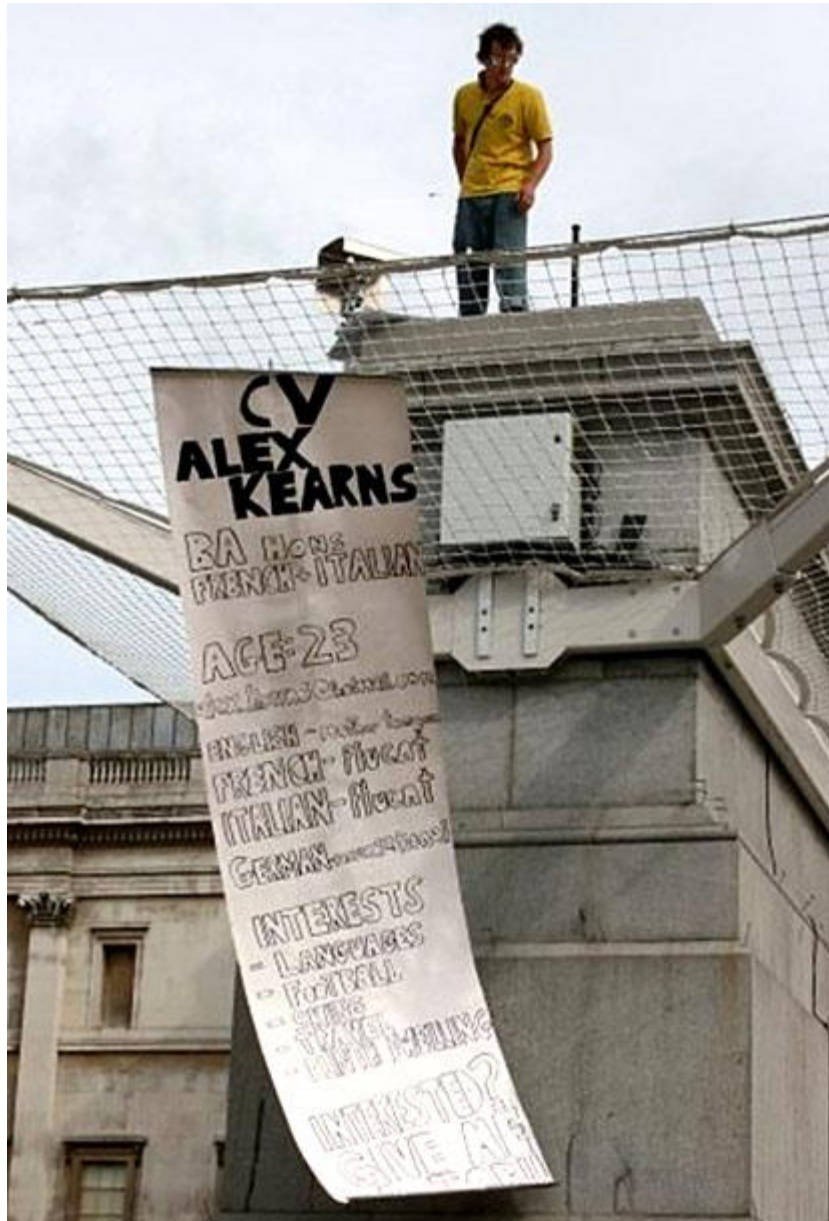 CV
ALEX
KEARNS
BA HONS
FRENCH + ITALIAN
AGE: 23
ENGLISH - mother tongue
FRENCH - fluent
ITALIAN - fluent
GERMAN - conversational
INTERESTS
- LANGUAGES
- FOOTBALL
- SKIING
- TRAVEL
INTERESTED?
GIVE ME